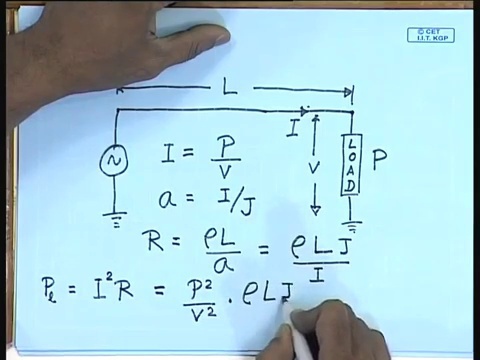 © CET
I.I.T. KGP
L
I
V
LOAD
P
~
I = P/V
a = I/J
R = ρL/a = ρLJ/I
Pℓ = I²R = P²/V² . ρLJ